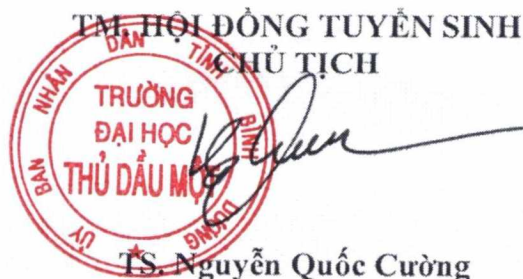 TM. HỘI ĐỒNG TUYỂN SINH
CHỦ TỊCH
ỦY BAN NHÂN DÂN TỈNH BÌNH DƯƠNG
TRƯỜNG
ĐẠI HỌC
THỦ DẦU MỘT
TS. Nguyễn Quốc Cường